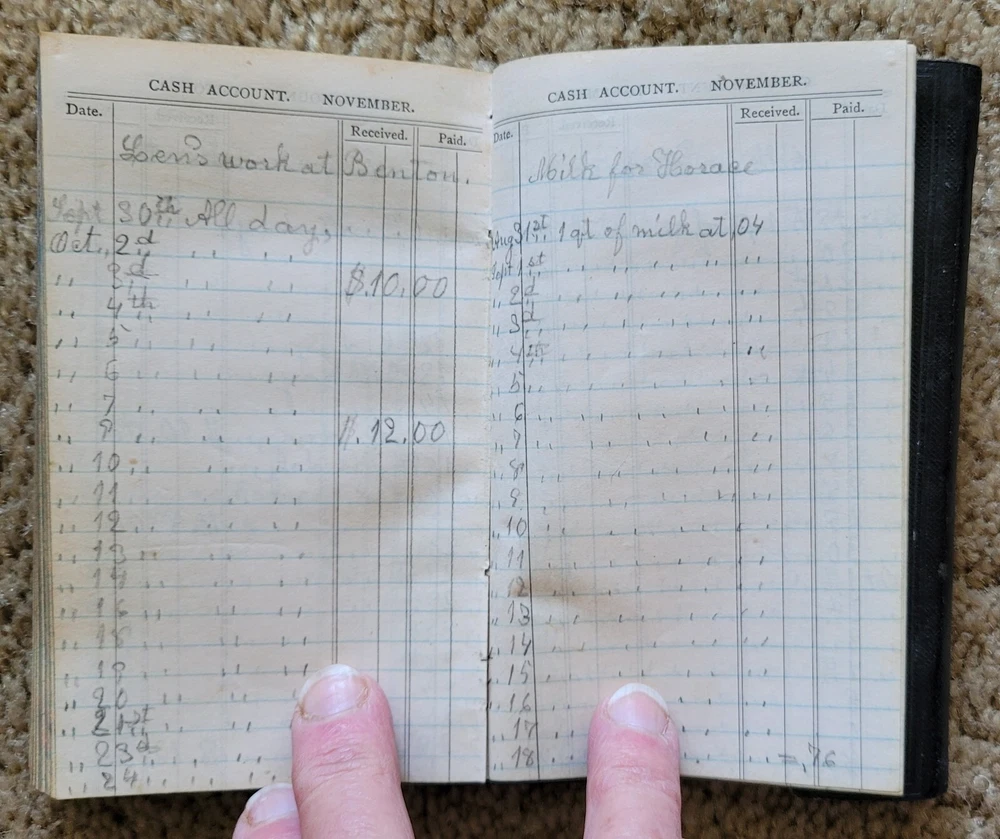 CASH ACCOUNT. NOVEMBER.
Date. Received. Paid.
Len's work at Benton.
Sept 30th All day,
Oct. 2d ,, ,, ,,
,, 3d ,, ,, ,, $.10.00
,, 4th ,, ,, ,,
,, 5 ,, ,, ,,
,, 6 ,, ,, ,,
,, 7 ,, ,, ,,
,, 9 ,, ,, ,, $.12.00
,, 10 ,, ,, ,,
,, 11 ,, ,, ,,
,, 12 ,, ,, ,,
,, 13 ,, ,, ,,
,, 14 ,, ,, ,,
,, 16 ,, ,, ,,
,, 18 ,, ,, ,,
,, 19 ,, ,, ,,
,, 20 ,, ,,
,, 21st ,, ,,
,, 23d ,, ,,
,, 24 ,, ,, ,,
CASH ACCOUNT. NOVEMBER.
Date. Received. Paid.
Milk for Horace
Aug 31st, 1 qt of milk at 04
Sept 1st ,, ,, ,, ,, ,,
,, 2d ,, ,, ,, ,, ,,
,, 3d ,, ,, ,, ,, ,,
,, 4th ,, ,, ,, ,, ,,
,, 5 ,, ,, ,, ,, ,,
,, 6 ,, ,, ,, ,, ,,
,, 7 ,, ,, ,, ,, ,,
,, 8 ,, ,, ,, ,, ,,
,, 9 ,, ,, ,, ,, ,,
,, 10 ,, ,, ,, ,, ,,
,, 11 ,, ,, ,, ,, ,,
,, 12 ,, ,, ,, ,, ,,
,, 13 ,, ,, ,, ,, ,,
,, 14 ,, ,, ,, ,, ,,
,, 15 ,, ,, ,, ,, ,,
,, 16 ,, ,, ,, ,,
,, 17 ,, ,, ,, ,,
,, 18 ,, ,, ,, ,, =,76